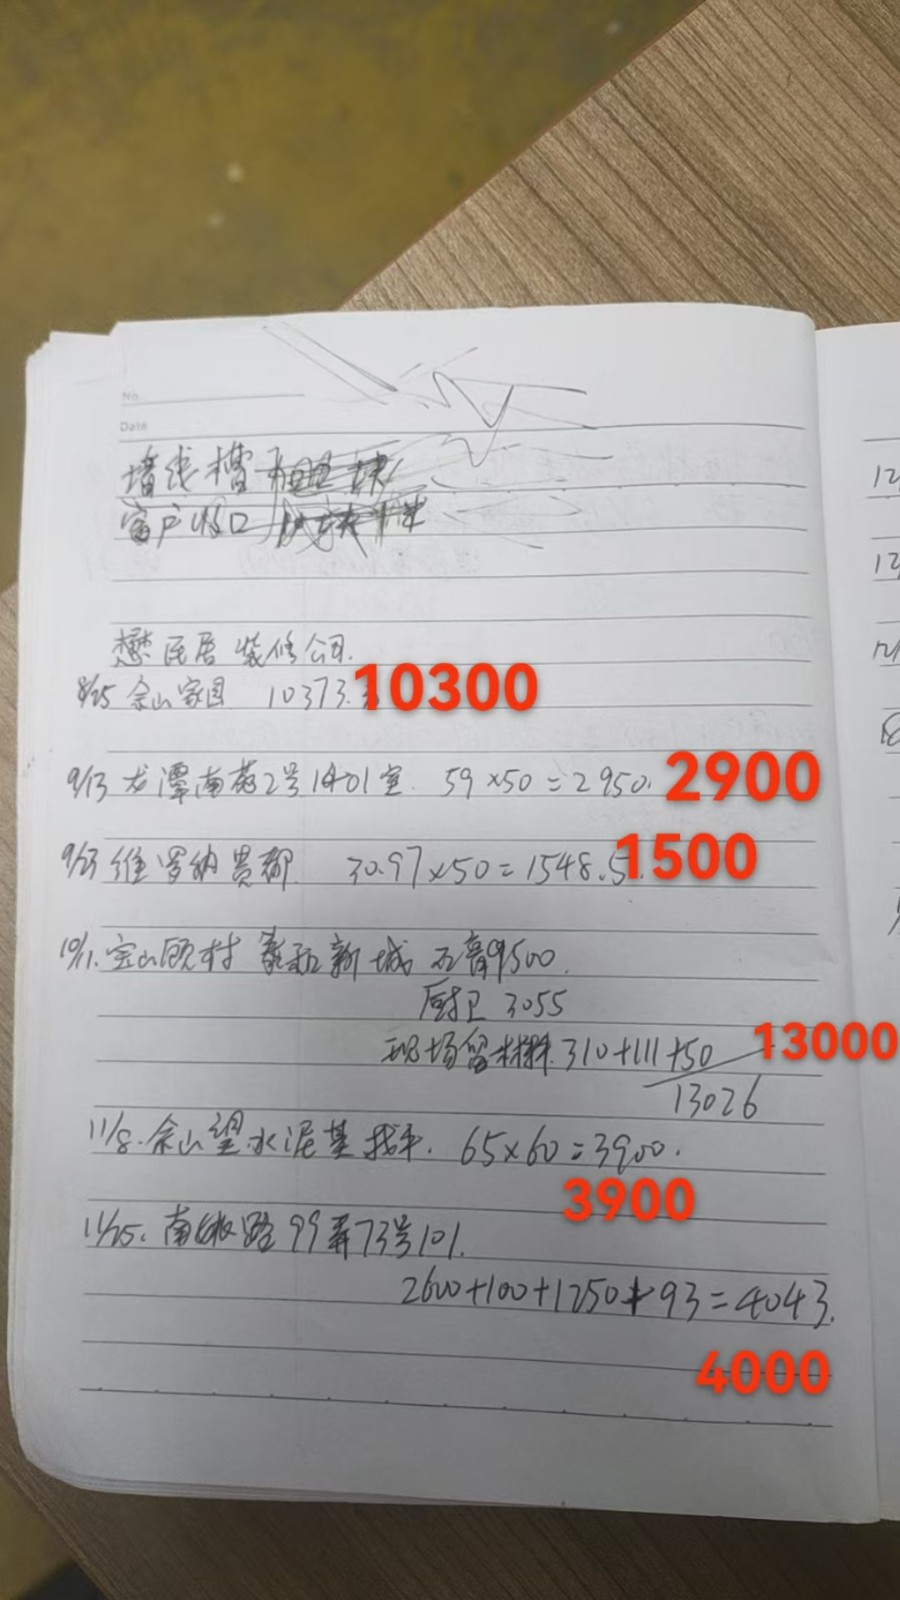 No.
Date
堵线槽
窗户收口
懋民居 装修公司.
8/25 佘山家园 10373. 10300
9/13 龙潭南苑2号1401室. 59×50=2950. 2900
9/23 维罗纳贵都 30.97×50=1548.5. 1500
10/11. 宝山顾村 新城 石膏9500.
厨卫 3055
现场留材料 310+111+50 13000
13026
11/8. 佘山望 水泥基找平. 65×60=3900.
3900
11/25. 南 路99弄73号101.
2600+100+1250+93=4043.
4000
12
12